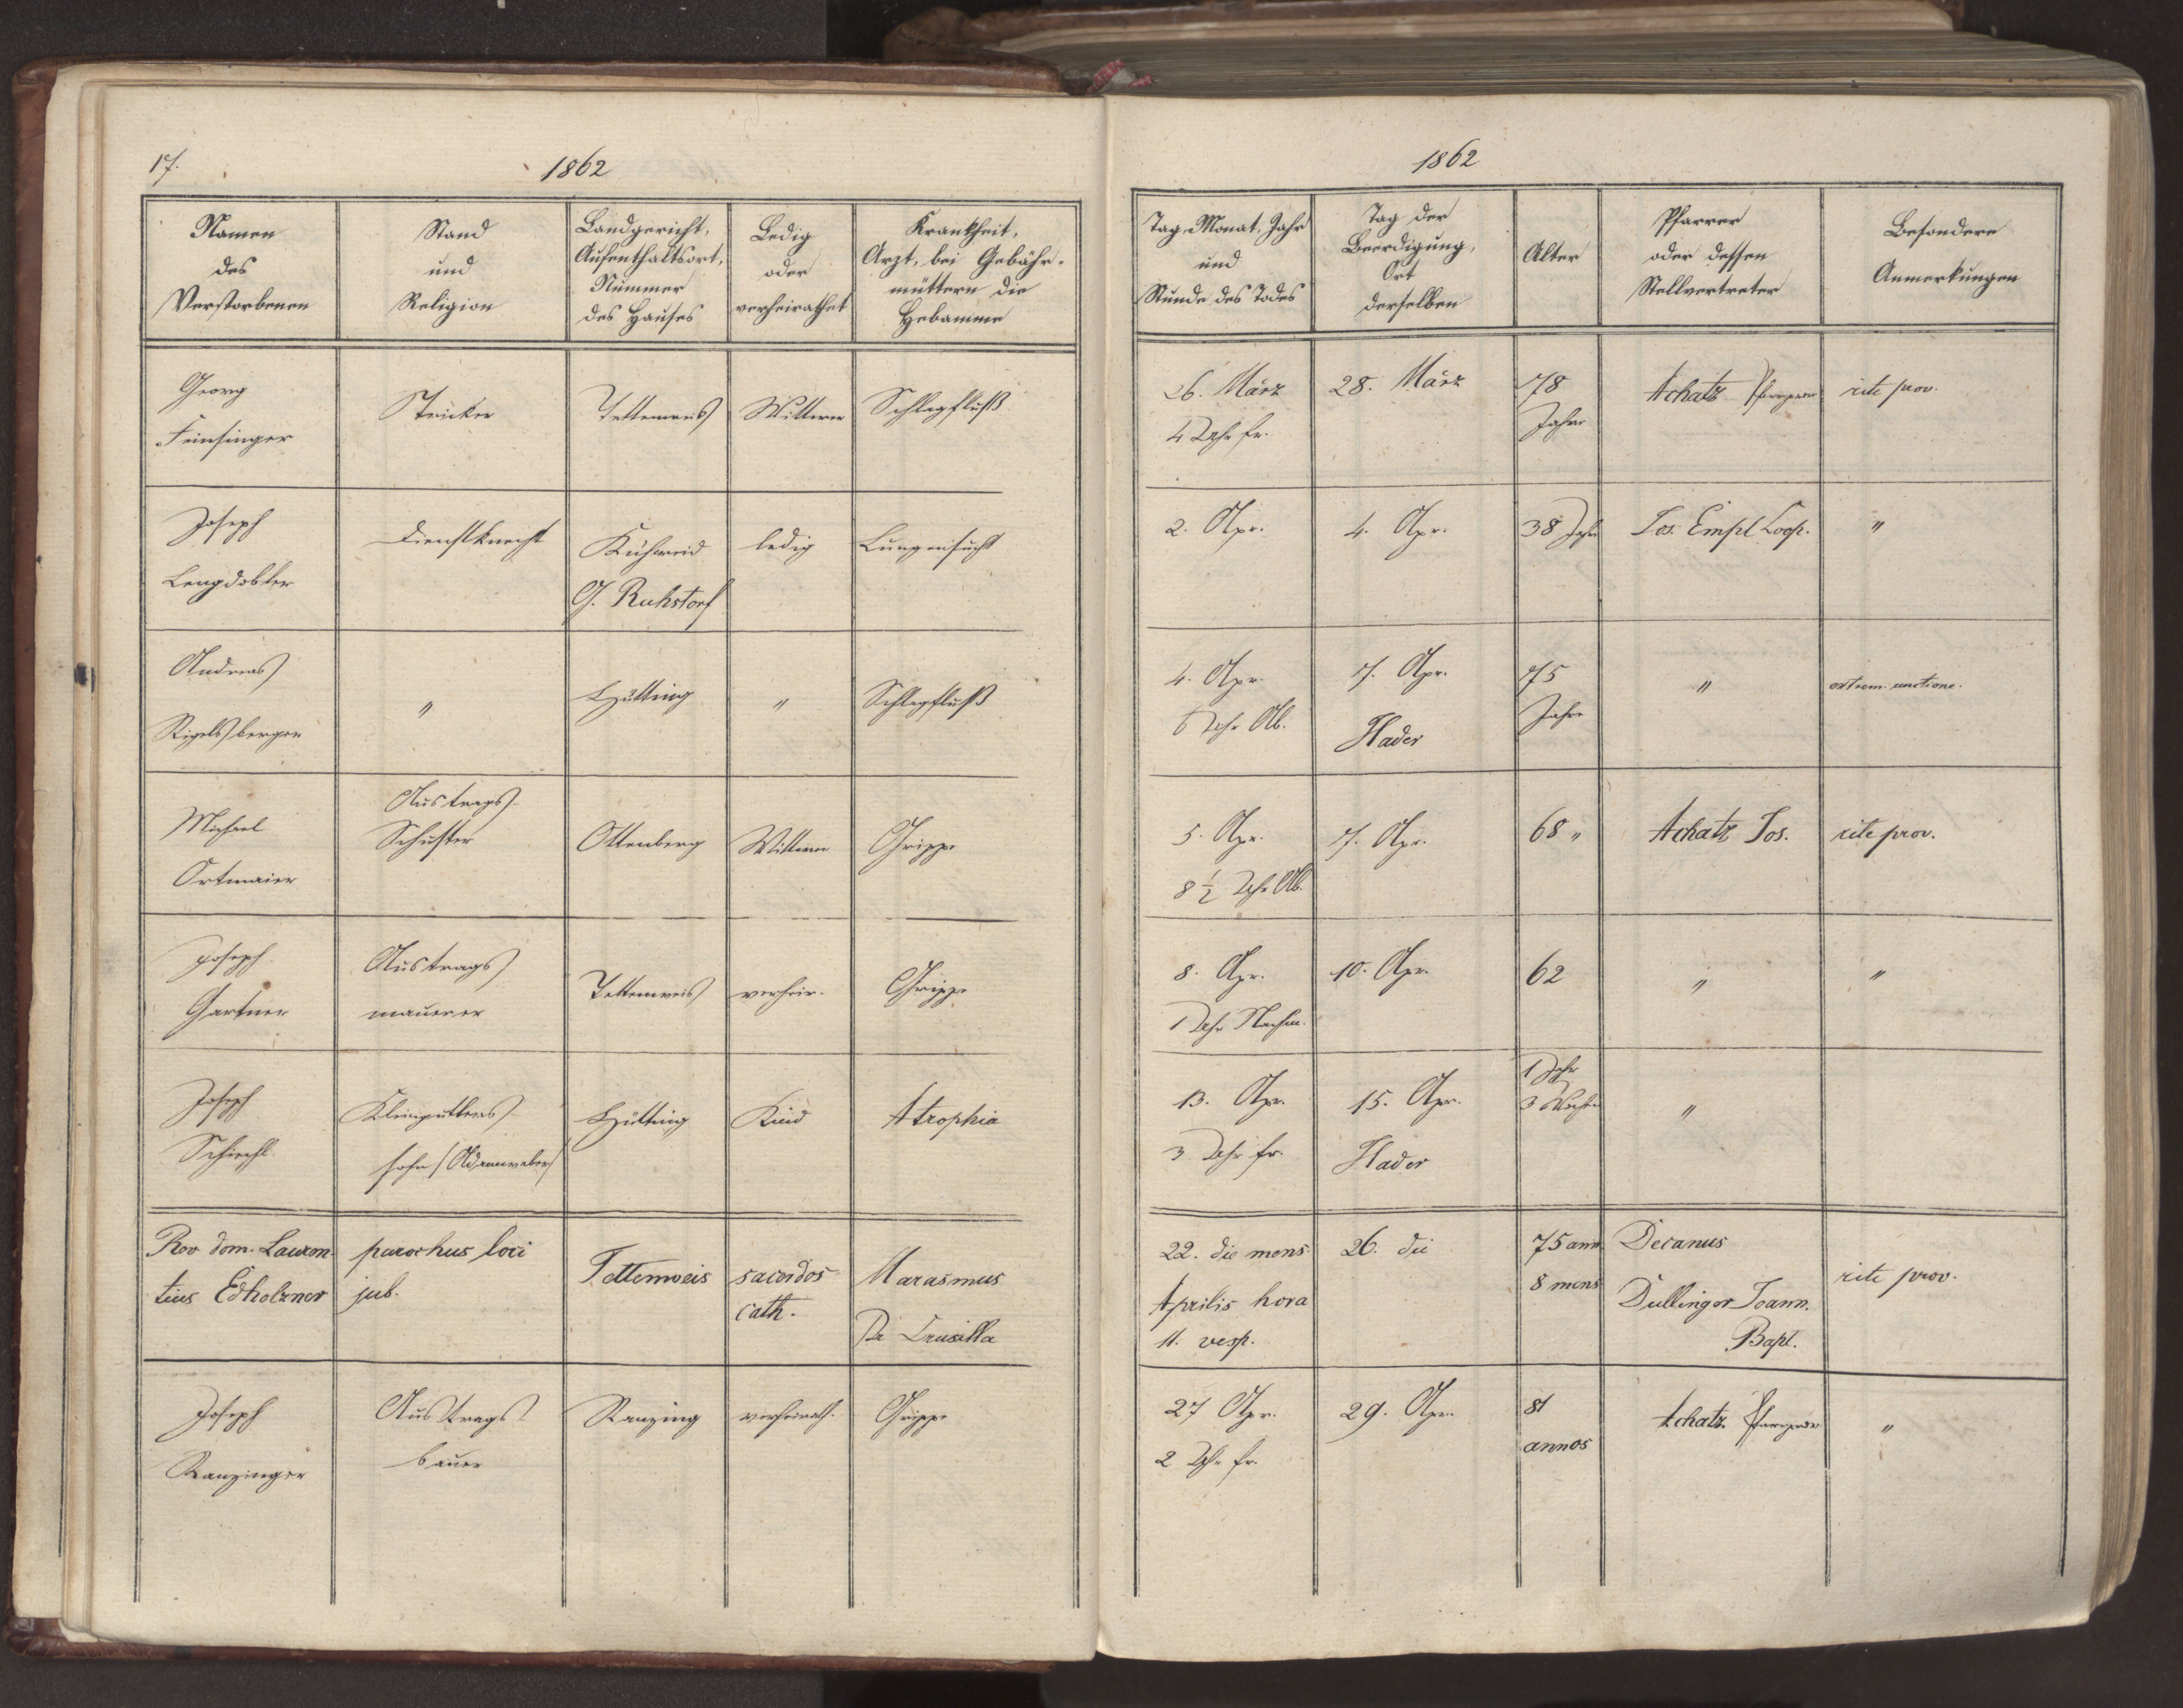 17.
1862
Namen
des
Verstorbenen
Stand
und
Religion
Landgericht,
Aufenthaltsort,
Nummer
des Hauses
Ledig
oder
verheirathet
Krankheit,
Arzt, bei Gebähr-
müttern die
Hebamme
Georg
Stricker
Tettenweis
Wittwer
Schlagfluß
Joseph
Lengdobler
Dienstknecht
Kühweid
G. Ruhstorf
ledig
Lungensucht
Andreas
Rigelsberger
"
Hütting
"
Schlagfluß
Michael
Ortmaier
Austrags-
Schuster
Ottenberg
Wittwer
Grippe
Joseph
Gartner
Austrags
maurer
Tettenweis
verheir.
Grippe
Joseph
Schiechl
Kleingütlers
sohn (Adamweber)
Hütting
Kind
Atrophia
Rev dom. Lauren-
tius Edholzner
parochus loci
jub.
Tettenweis
sacerdos
cath.
Marasmus
Dr
Joseph
Ranzinger
Austrags
bauer
Ranzing
verheirath.
Grippe
1862
Tag, Monat, Jahr
und
Stunde des Todes
Tag der
Beerdigung,
Ort
derselben
Alter
Pfarrer
oder dessen
Stellvertreter
Besondere
Anmerkungen
26. März
4 Uhr fr.
28. März
78
Jahre
Achatz
rite prov.
2. Apr.
4. Apr.
38 Jahr
Jos. Empl Coop.
"
4. Apr.
6 Uhr Ab.
7. Apr.
Hader
75
Jahre
"
extrem. unctione.
5. Apr.
8 ½ Uhr Ab.
7. Apr.
68 "
Achatz Jos.
rite prov.
8. Apr.
1 Uhr Nachm.
10. Apr.
62
"
"
13. Apr.
3 Uhr fr.
15. Apr.
Hader
1 Jahr
3 Wochen
"
22. die mens
Aprilis hora
11. vesp.
26. die
75 ann
8 mens
Decanus
Dullinger Joann.
Bapt.
rite prov.
27 Apr.
2 Uhr fr.
29. Apr.
81
annos
Achatz
"